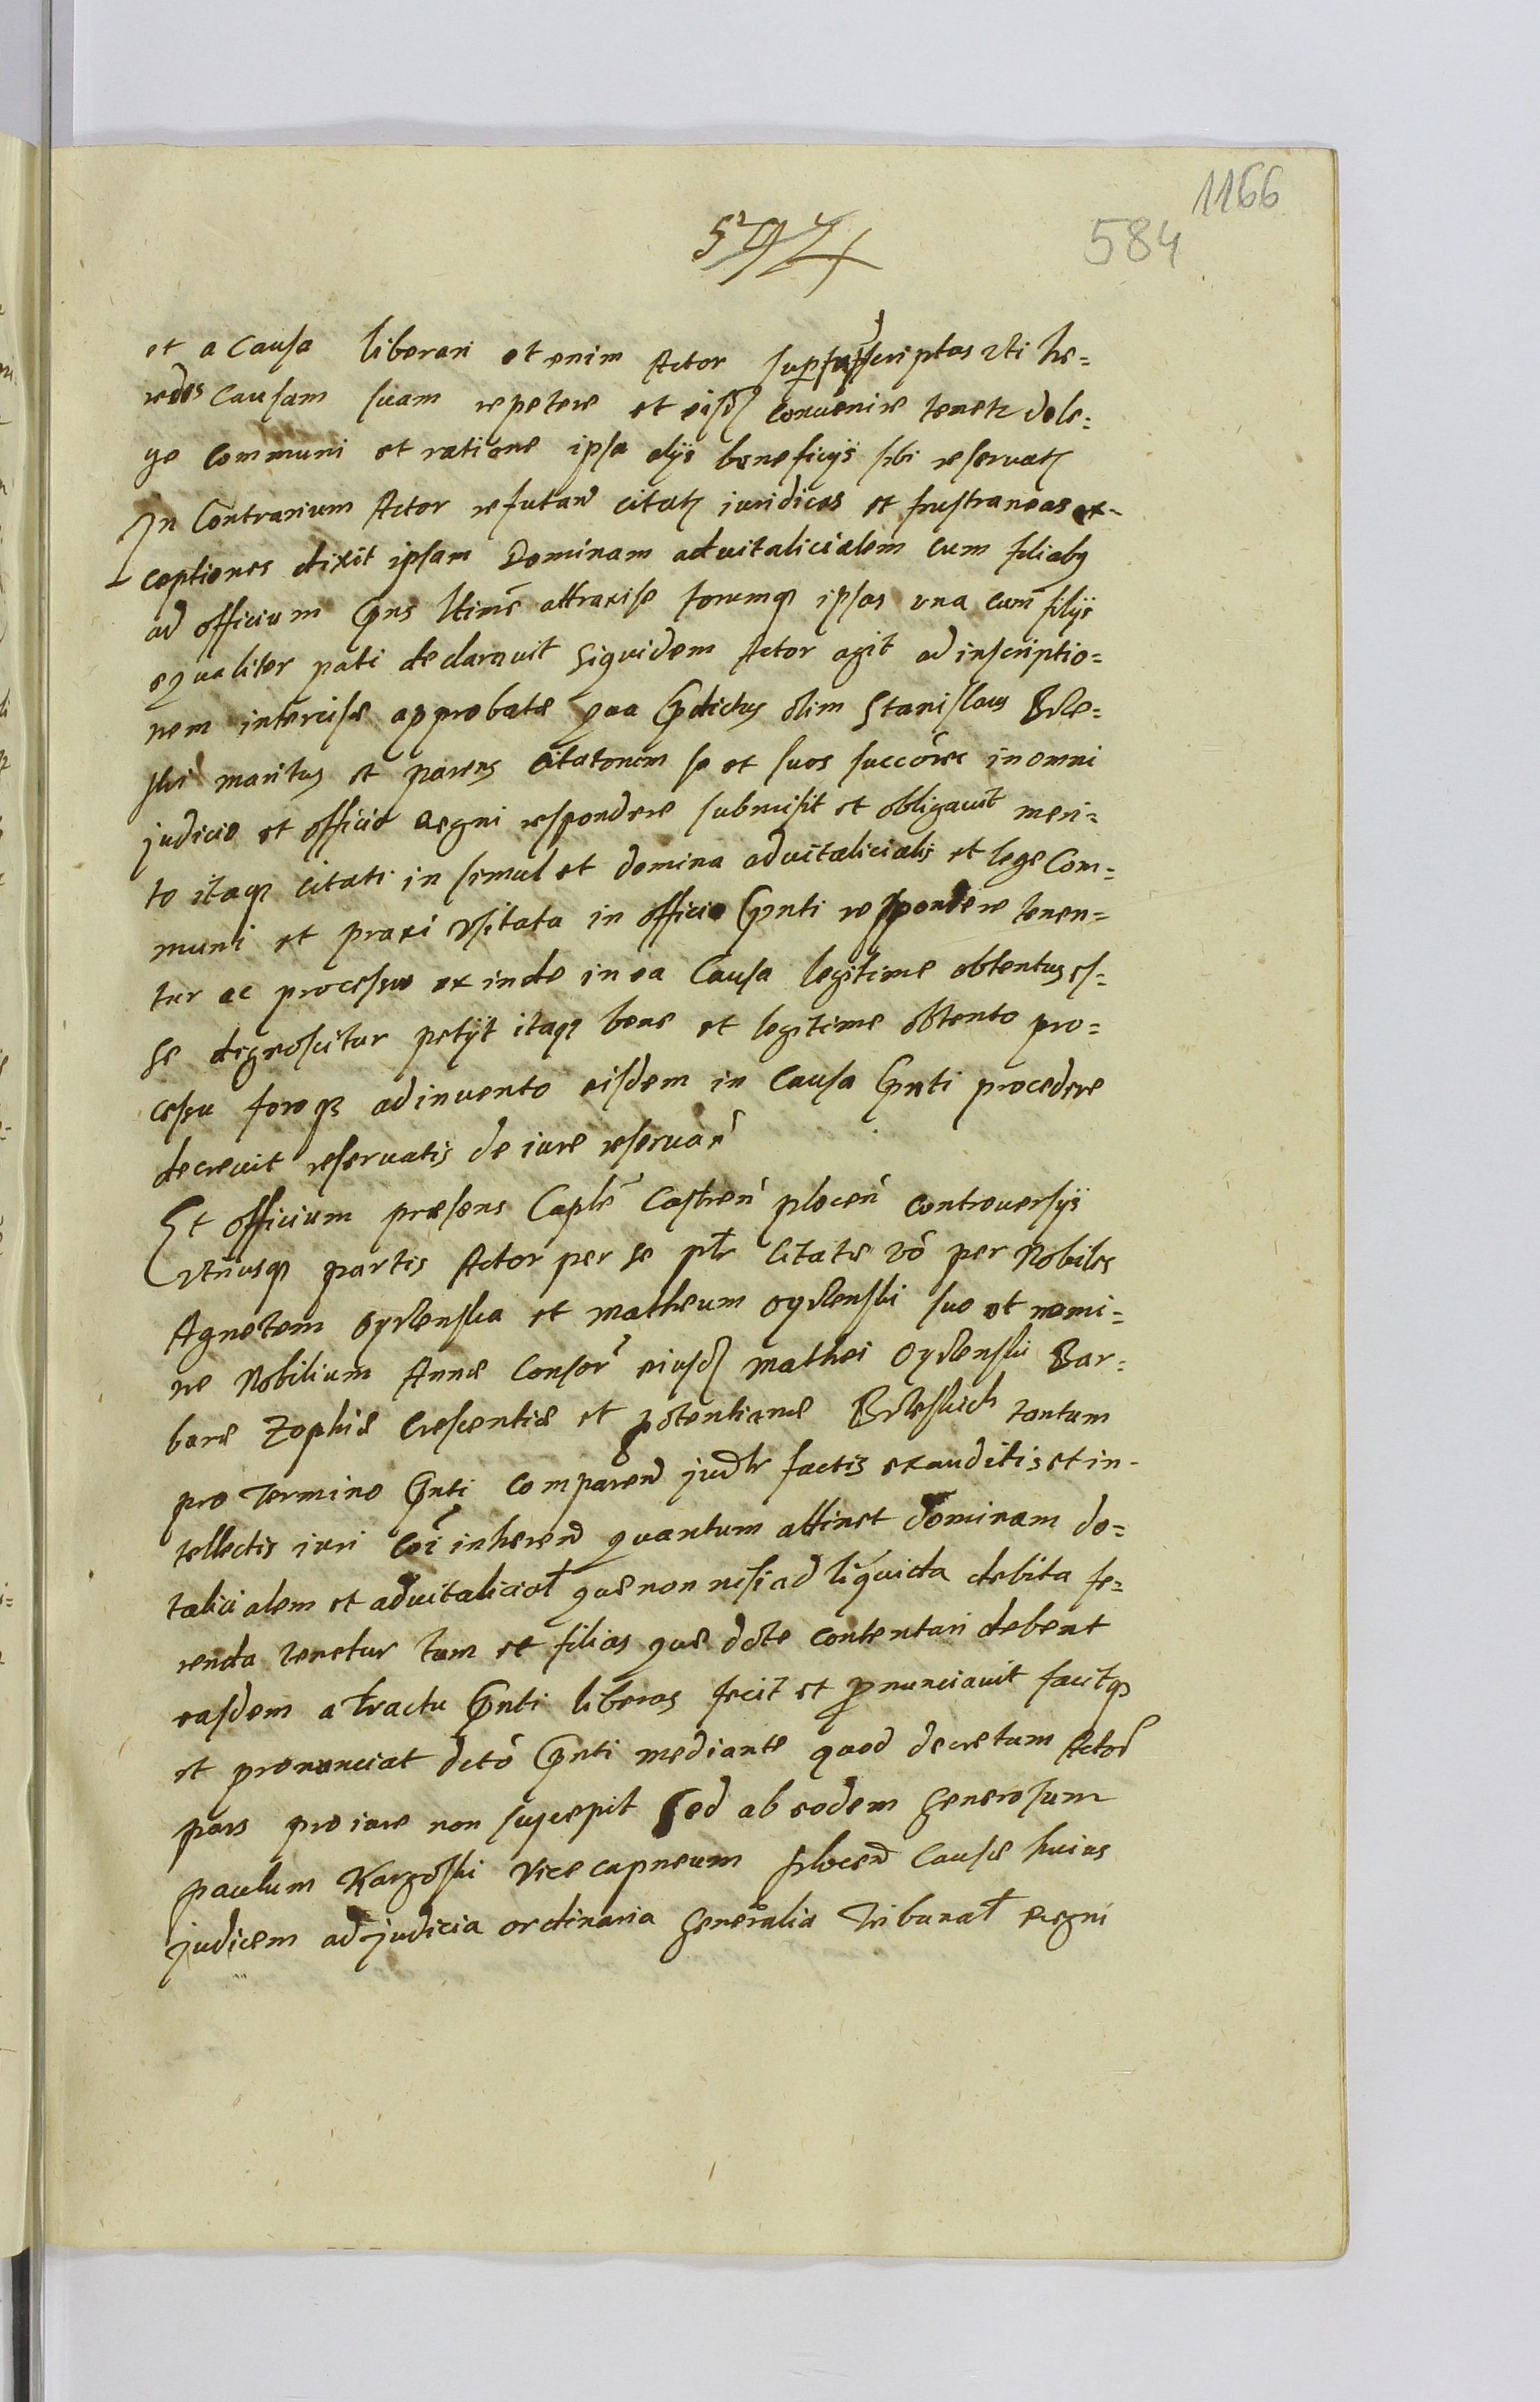 1166
584
et a Causa liberari et enim Actor suprascriptos uti he=
redes Causam suam repetere et eisd convenire tenetr de le=
ge communi et ratione ipsa alijs beneficijs sibi reservat
In Contrarium Actor refutand citat iuridicas et frustraneas ex-
ceptiones dixit ipsam Dominam advitalicialem cum filiabq
ad officium pns ltime attraxisse forumq ipsas una cum filijs
equaliter pati declaravit siquidem Actor agit ad inscriptio=
nem intercisæ approbatæ qua pdictus olim Stanislaus Brle=
ski maritus et parens citatorum se et suos succōres in omni
judicio et officio Regni respondere submisit et obligavit meri=
to itaq citati in simul et domina advitalicialis et lege Com=
muni et praxi usitata in officio pnti respondere tenen=
tur ac processus ex inde in ea Causa legitime obtentus es=
se dignoscitur petijt itaq bene et legitime obtento pro=
cessu foroq adinvento eisdem in Causa pnti procedere
decrevit reservatis de iure reservan
Et officium præsens Caple Castren plocen controversijs
Utriusq partis Actor per se pltr Citatæ vō per Nobiles
Agnetem et Matheum suo et nomi=
ne Nobilium Annæ Consor eiusd Mathei Bar=
baræ Zophiæ Crescentiæ et potentianæ tantum
pro Termino pnti comparen judltr factis exauditis et in-
tellectis iuri Coī inherend quantum attinet Dominam do=
talicialem et advitalicial quæ non nisi ad liquida debita fe=
renda tenetur tum et filias quæ dote contentari debent
easdem a tractu pnti liberas fecit et pnunciavit facitq
et pronunciat dcto pnti mediante quod decretum Actor
pars pro iure non suscepit Sed ab eodem Generosum
paulum Kargoski Vicecapneum plocen Causæ huius
judicem ad judicia ordinaria Generalia Tribunal Regni